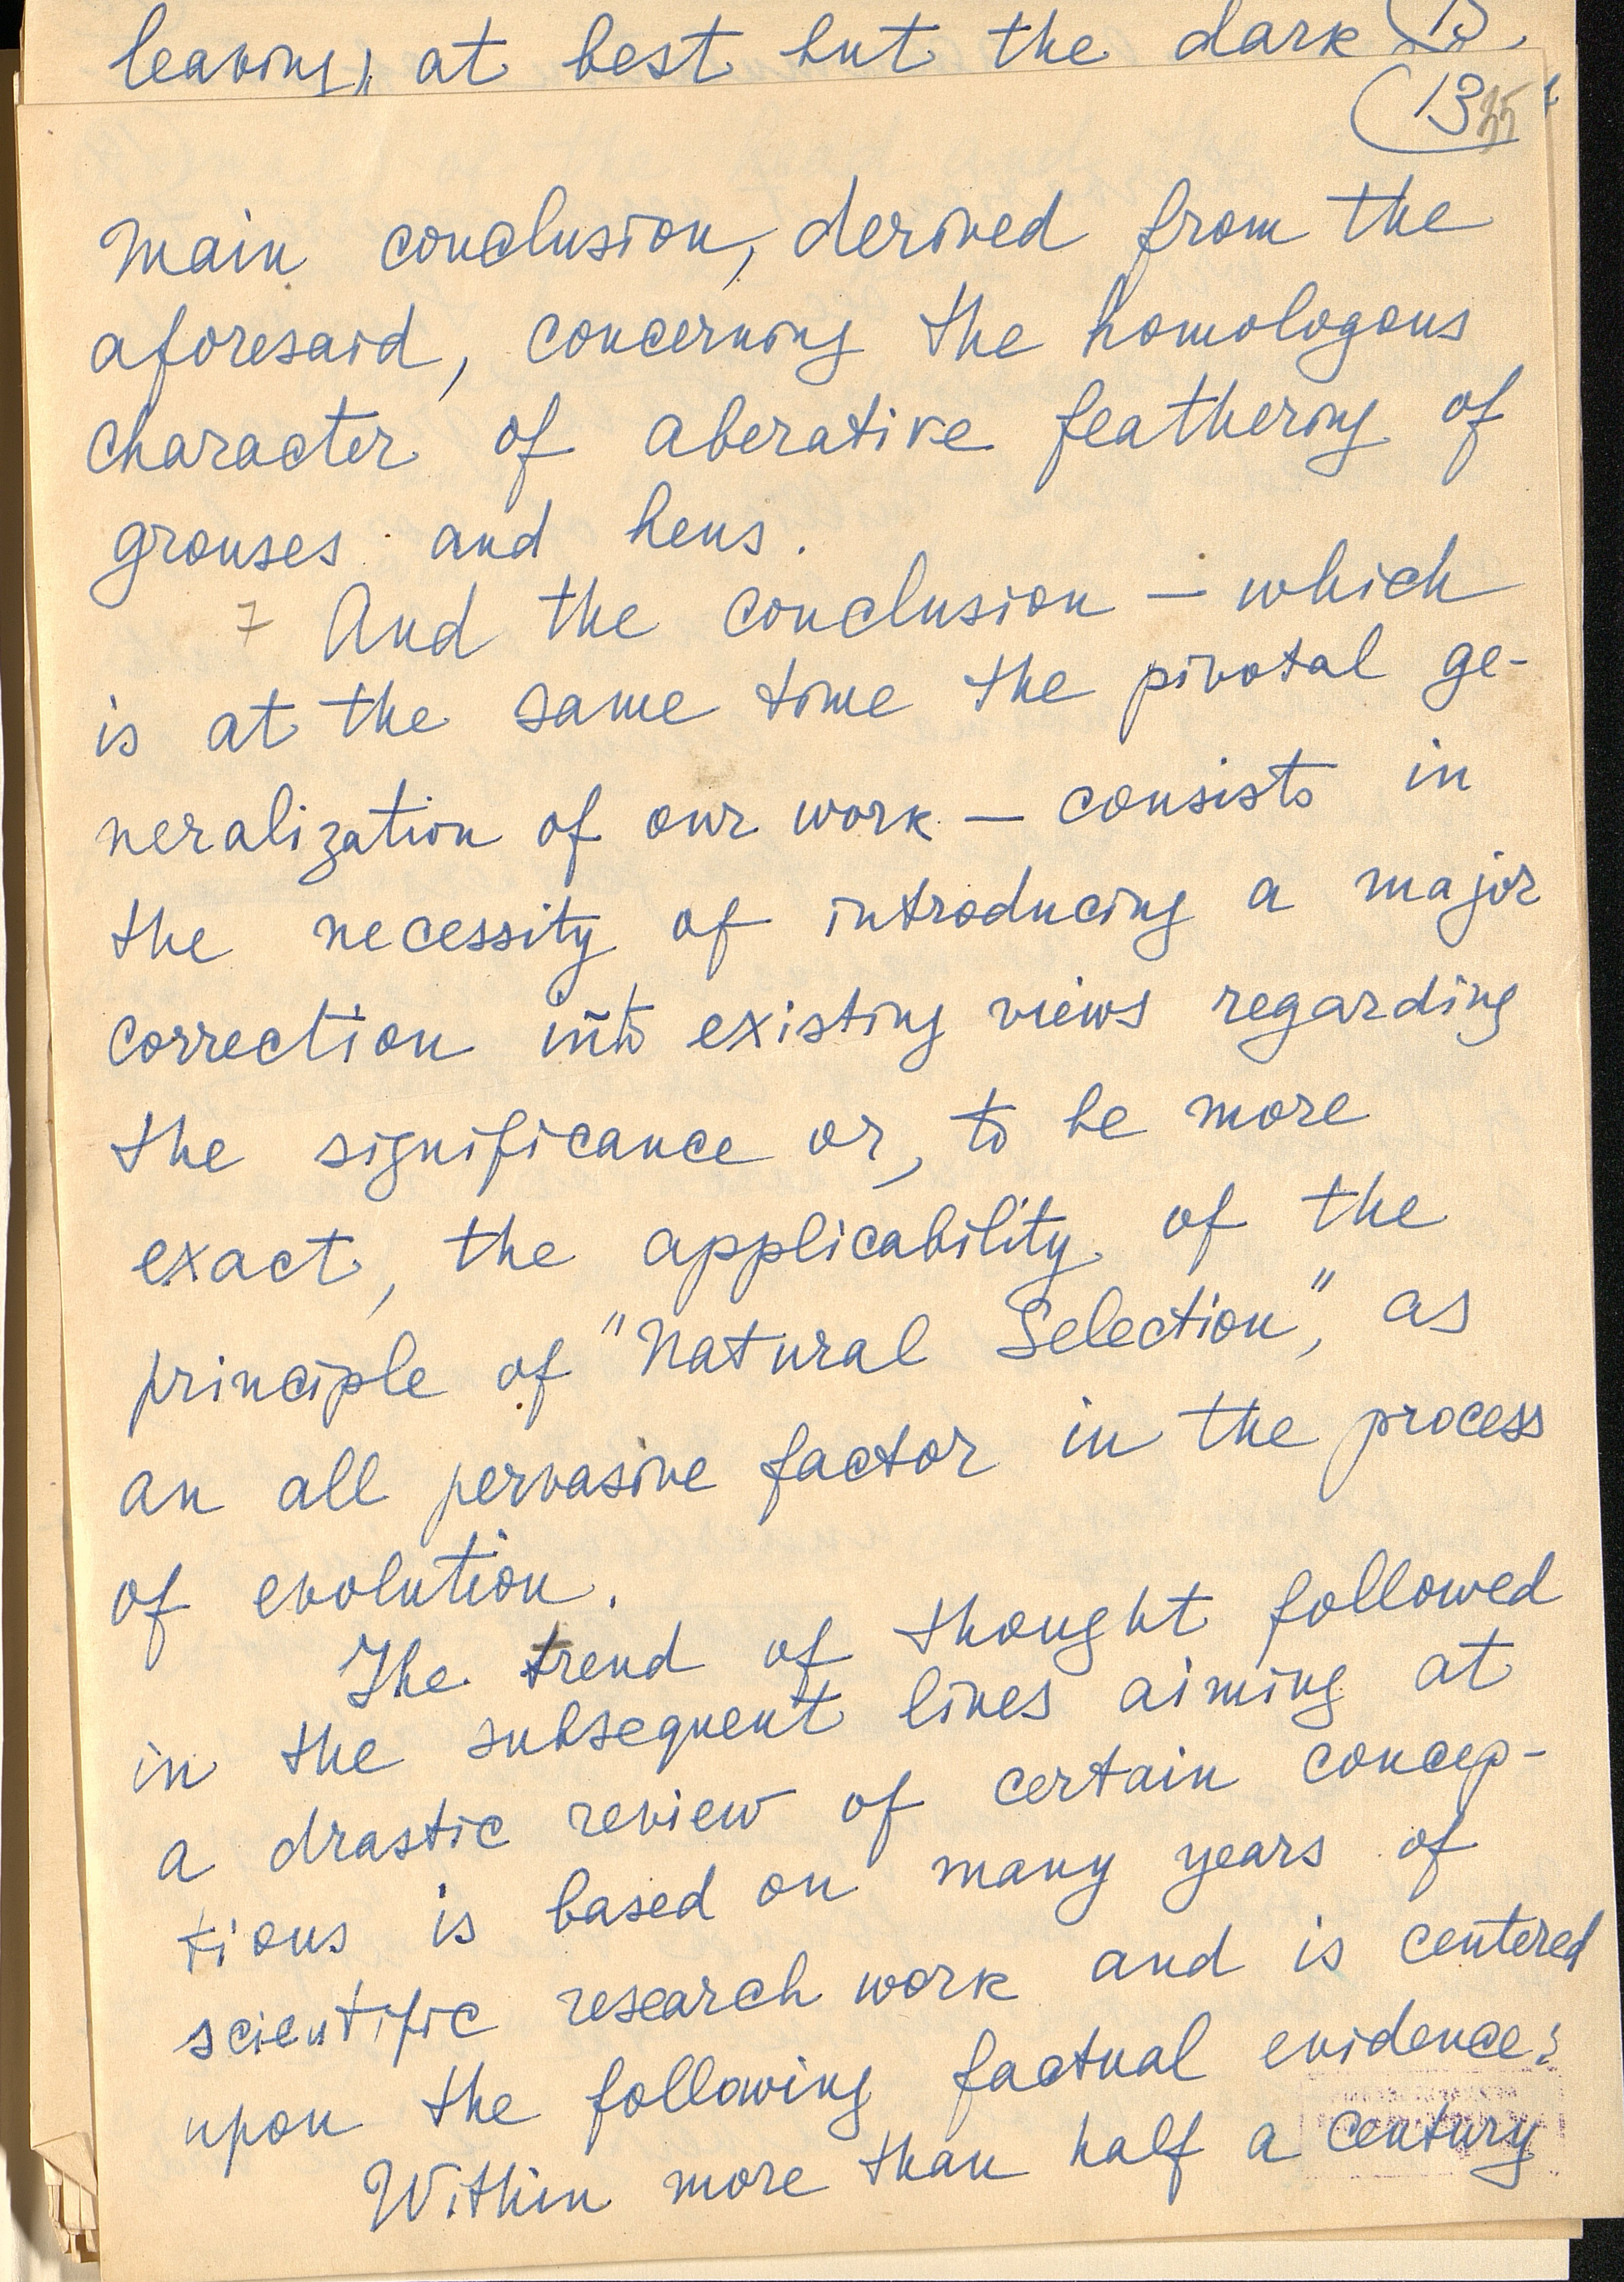 leaving, at best but the dark
13 35
main conclusion, derived from the
aforesaid, concerning the homologous
character of aberative feathering of
grouses and hens.
And the conclusion — which
is at the same time the pivotal ge-
neralization of our work — consists in
the necessity of introducing a major
correction into existing views regarding
the significance or, to be more
exact, the applicability of the
principle of "Natural Selection", as
an all pervasive factor in the process
of evolution.
The trend of thought followed
in the subsequent lines aiming at
a drastic review of certain concep-
tions is based on many years of
scientific research work and is centered
upon the following factual evidence:
Within more than half a century